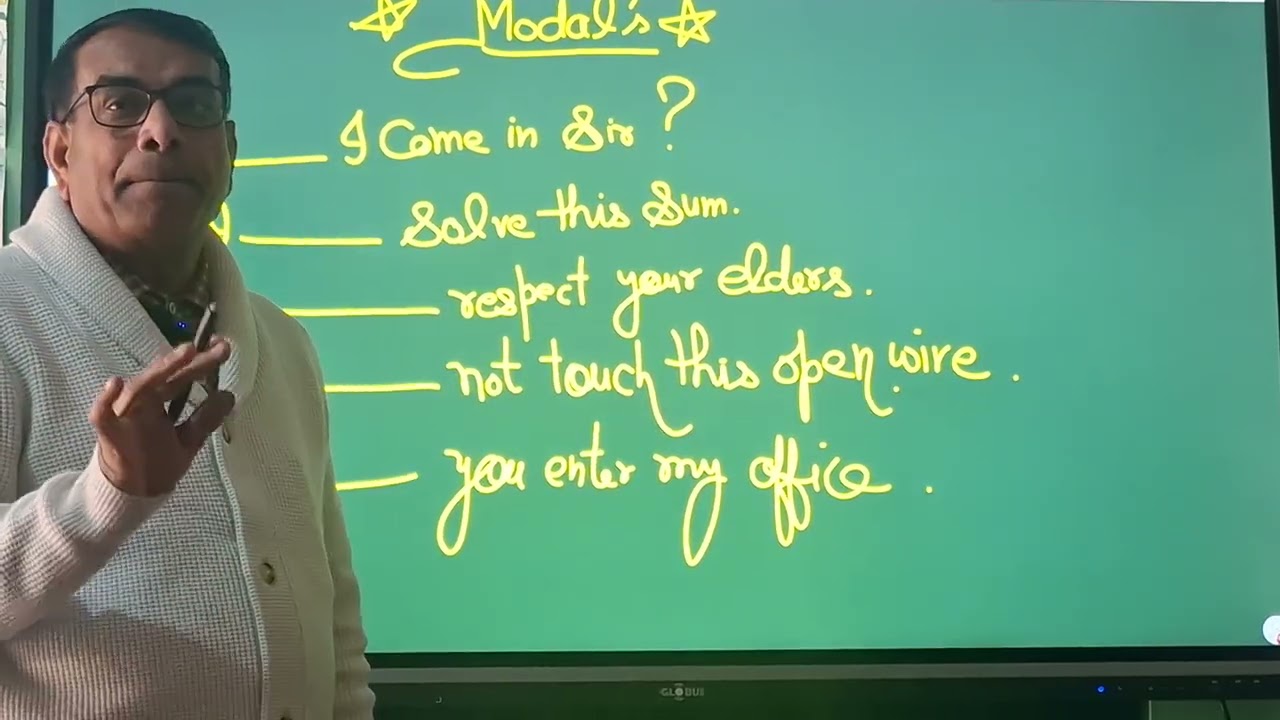 ☆ Modal's ☆
____ I Come in Sir ?
____ Solve this Sum.
____ respect your elders.
____ not touch this open wire.
____ you enter my office.
GLOBUS